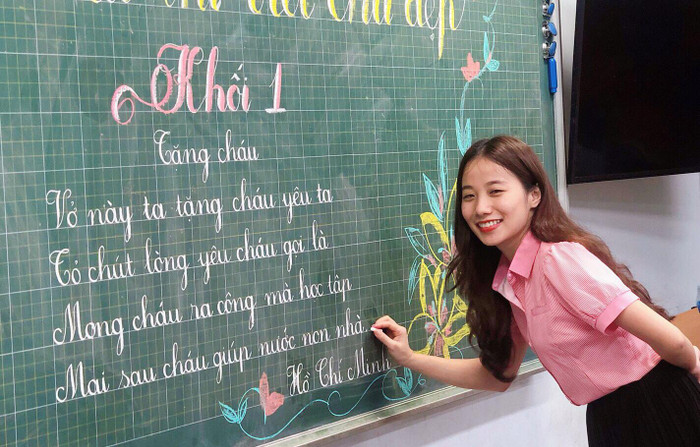 thi viết chữ đẹp
Khối 1
Tặng cháu
Vở này ta tặng cháu yêu ta
Tỏ chút lòng yêu cháu gọi là
Mong cháu ra công mà học tập
Mai sau cháu giúp nước non nhà
Hồ Chí Minh